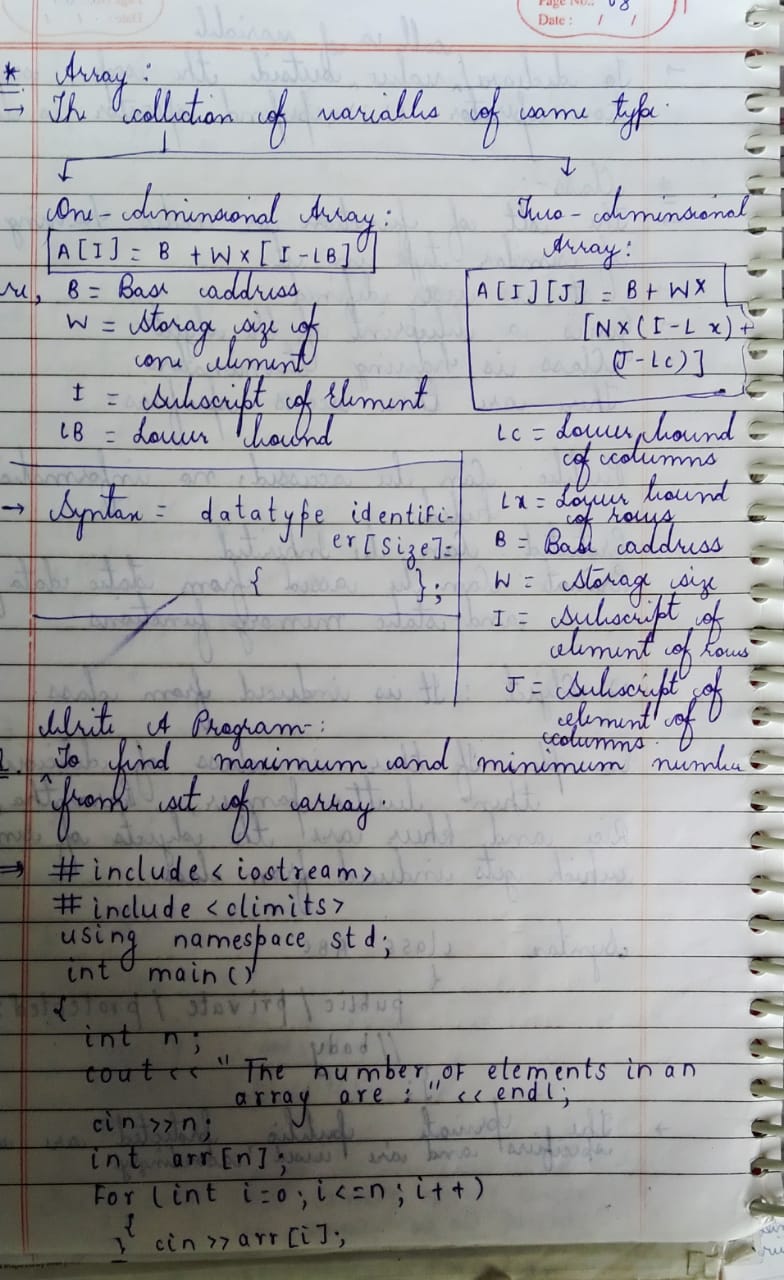 Page No.: 08
Date: / /
* Array:
→ The collection of variables of same type.
One-diminsional Array:
A[I] = B + W×[I-LB]
B = Base address
W = Storage size of
one element
I = Subscript of Element
LB = Lower bound
→ Syntax = datatype identifi-
er[size]=
{ };
Two-diminsional
Array:
A[I][J] = B + W×
[N×(I-Lx)+
(J-Lc)]
Lc = Lower bound
of columns
Lx = Lower bound
of rows
B = Base address
W = Storage size
I = Subscript of
element of rows
J = Subscript of
element of
columns.
Write A Program:
1. To find maximum and minimum numbe
from set of array.
⇒ # include< iostream>
# include <climits>
using namespace std;
int main()
{
int n;
cout << " The number of elements in an
array are : " << endl;
cin >>n;
int arr[n];
For (int i=0; i<=n; i++)
{
} cin >> arr[i];